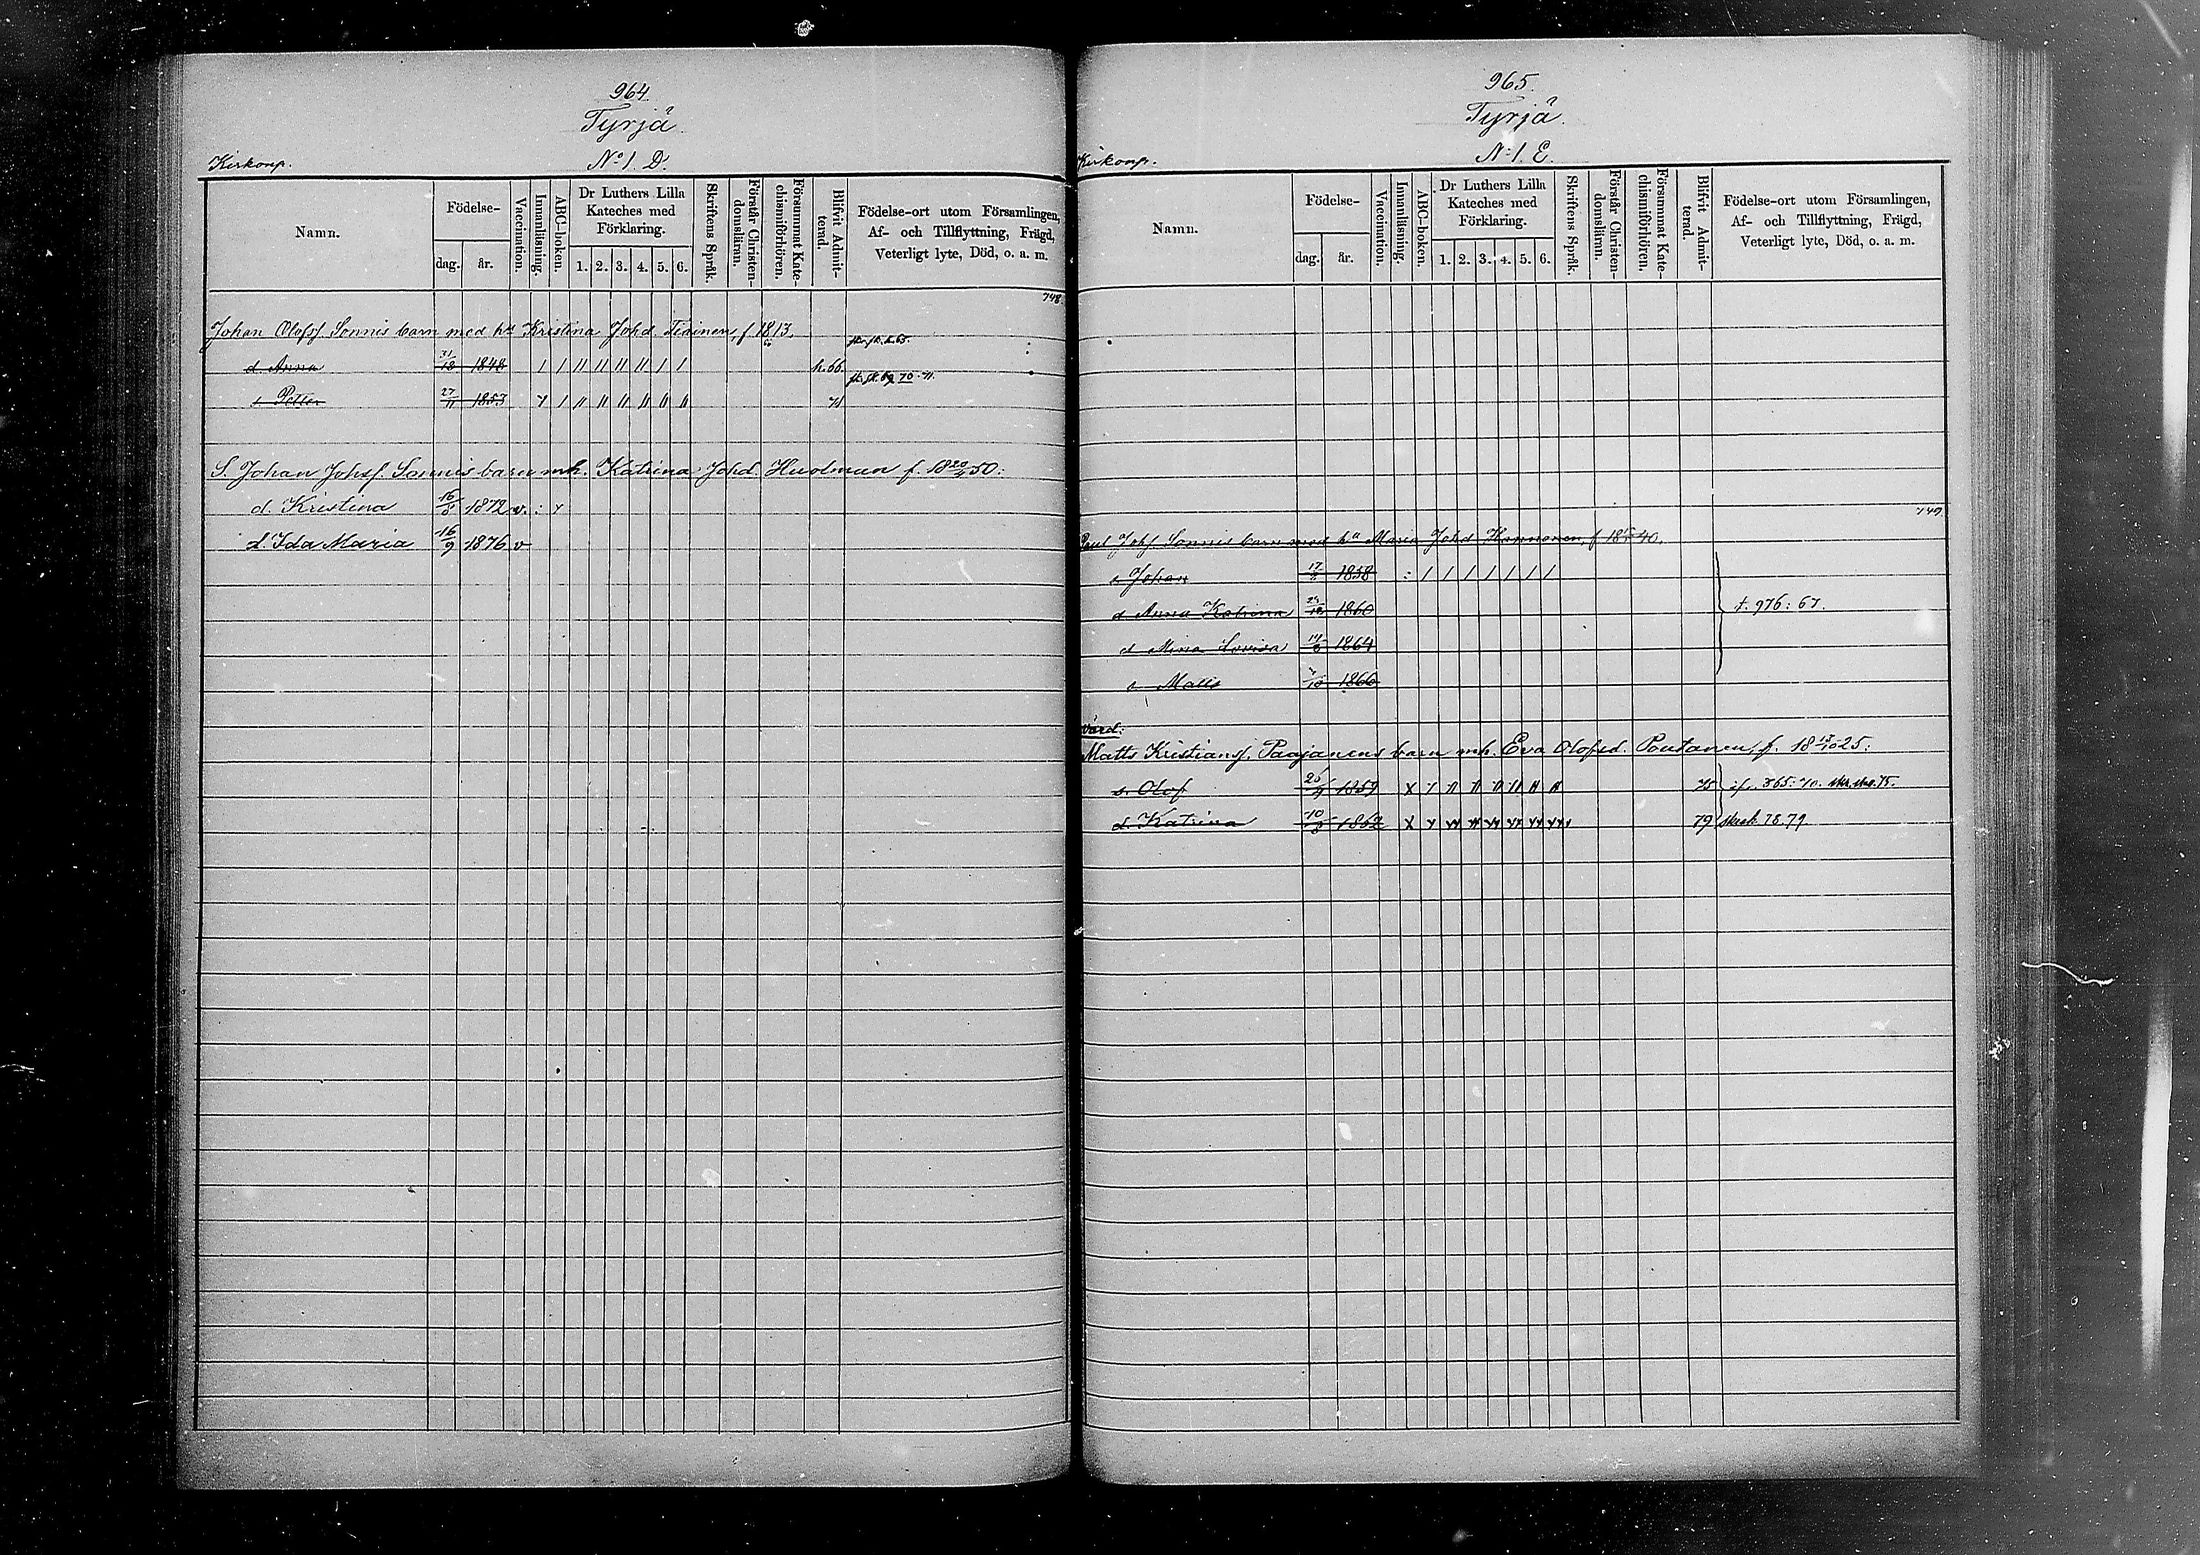 964.
Tyrjä.
Kirkonp. No 1. D.
Namn. Födelse- dag. år. Vaccination. Innanläsning. ABC-boken. Dr Luthers Lilla Kateches med Förklaring. 1. 2. 3. 4. 5. 6. Skriftens Språk. Förstår Christendomsläran. Försummat Katechismiförhören. Blifvit Admitterad. Födelse-ort utom Församlingen, Af- och Tillflyttning, Frägd, Veterligt lyte, Död, o. a. m.
748.
Johan Olofsf. Sonnis barn med hu Kristina Johd. Tiainen, f. 1813.
d. Anna 31/12 1848 h. 66.
s. Petter 27/11 1853 71
S. Johan Johsf. Sonnis barn mh. Katrina Johd. Huolman f. 18 50:
d. Kristina 16/8 1872 v.
d. Ida Maria 16/9 1876 v
965.
Tyrjä.
Kirkonp. N:1. E.
Namn. Födelse- dag. år. Vaccination. Innanläsning. ABC-boken. Dr Luthers Lilla Kateches med Förklaring. 1. 2. 3. 4. 5. 6. Skriftens Språk. Förstår Christendomsläran. Försummat Katechismiförhören. Blifvit Admitterad. Födelse-ort utom Församlingen, Af- och Tillflyttning, Frägd, Veterligt lyte, Död, o. a. m.
749.
Paul Johsf. Sonnis barn med hu Maria Johd. 40.
s. Johan 1858
d. Anna Katrina 1860
t. 976: 67.
d. Mina Lovisa 1864
s. Matts 1866
värd:
Matts Kristiansf. Paajanens barn mh. Eva Olofsd. Poutanen, f. 18 25:
s. Olof 1859 75 365: 70. 75.
d. Katrina 10/8 1862 79 78.79.